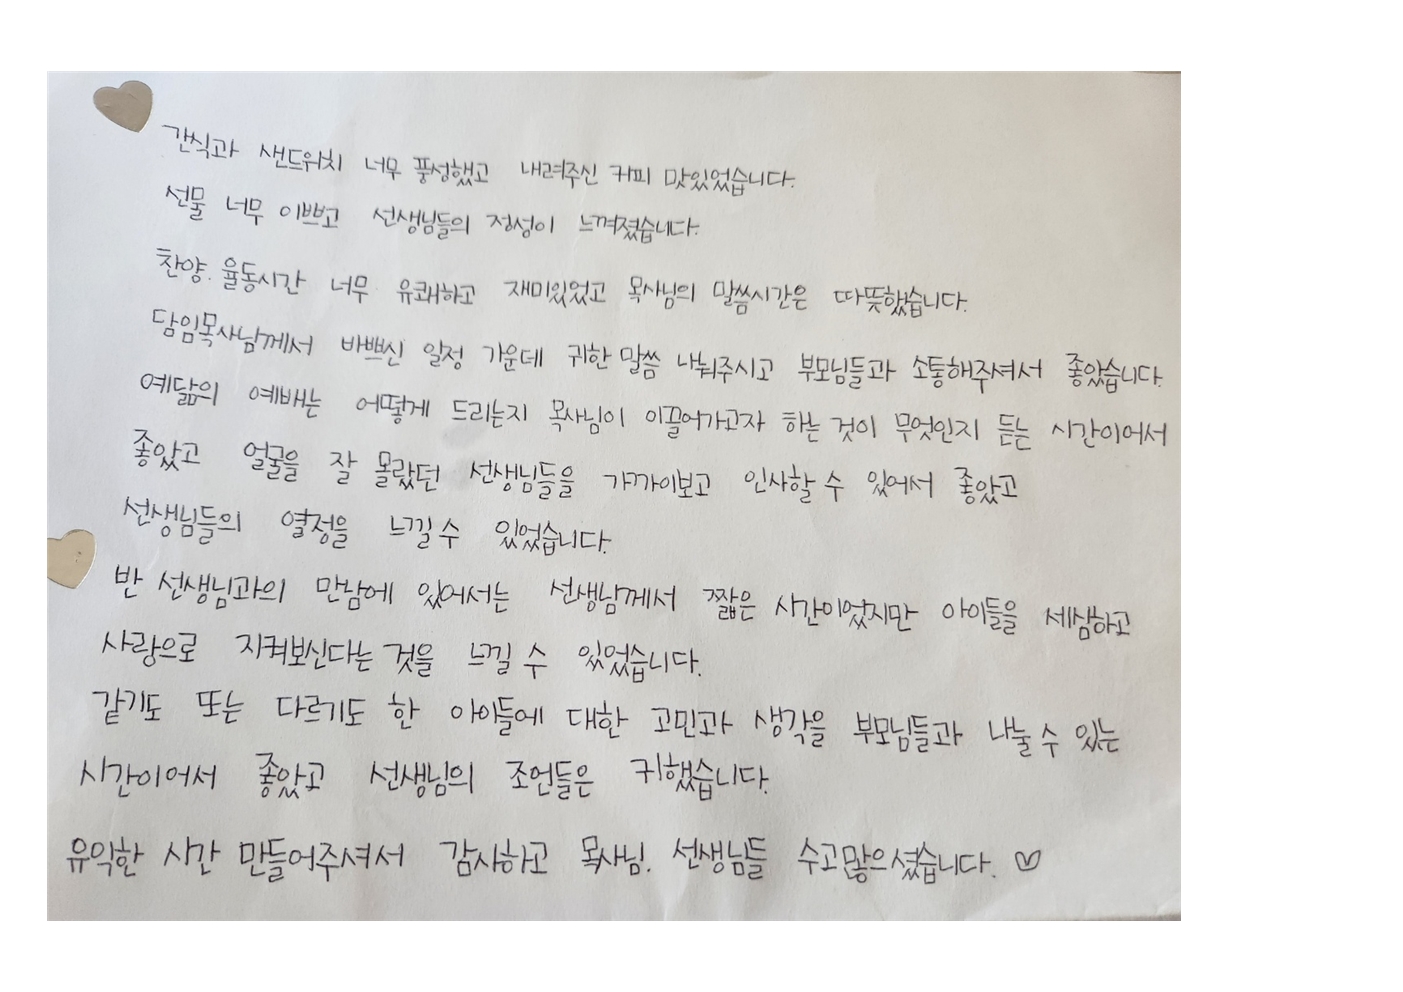 간식과 샌드위치 너무 풍성했고 내려주신 커피 맛있었습니다.
선물 너무 이쁘고 선생님들의 정성이 느껴졌습니다.
찬양. 율동시간 너무 유쾌하고 재미있었고 목사님의 말씀시간은 따뜻했습니다.
담임목사님께서 바쁘신 일정 가운데 귀한 말씀 나눠주시고 부모님들과 소통해주셔서 좋았습니다.
예닮의 예배는 어떻게 드리는지 목사님이 이끌어가고자 하는 것이 무엇인지 듣는 시간이어서
좋았고 얼굴을 잘 몰랐던 선생님들을 가까이보고 인사할 수 있어서 좋았고
선생님들의 열정을 느낄 수 있었습니다.
반 선생님과의 만남에 있어서는 선생님께서 짧은 시간이었지만 아이들을 세심하고
사랑으로 지켜보신다는 것을 느낄 수 있었습니다.
같기도 또는 다르기도 한 아이들에 대한 고민과 생각을 부모님들과 나눌 수 있는
시간이어서 좋았고 선생님의 조언들은 귀했습니다.
유익한 시간 만들어주셔서 감사하고 목사님. 선생님들 수고많으셨습니다. ♡